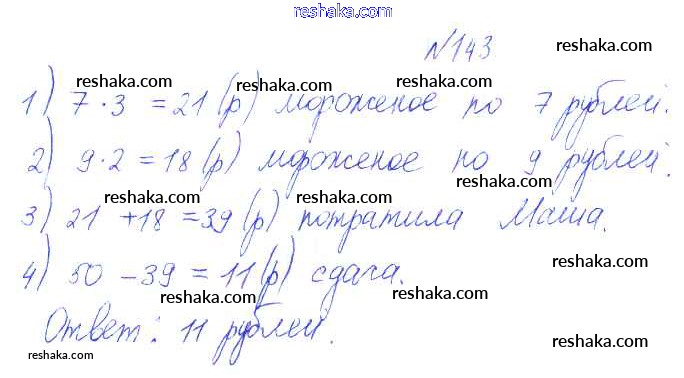 reshaka.com
№143
reshaka.com
reshaka.com
reshaka.com
1) 7·3 = 21 (р) мороженое по 7 рублей.
reshaka.com
reshaka.com
2) 9·2 = 18 (р) мороженое по 9 рублей.
reshaka.com
reshaka.com
3) 21 + 18 = 39 (р) потратила Маша.
reshaka.com
reshaka.com
4) 50 - 39 = 11 (р) сдача.
reshaka.com
reshaka.com
reshaka.com
Ответ: 11 рублей.
reshaka.com
reshaka.com